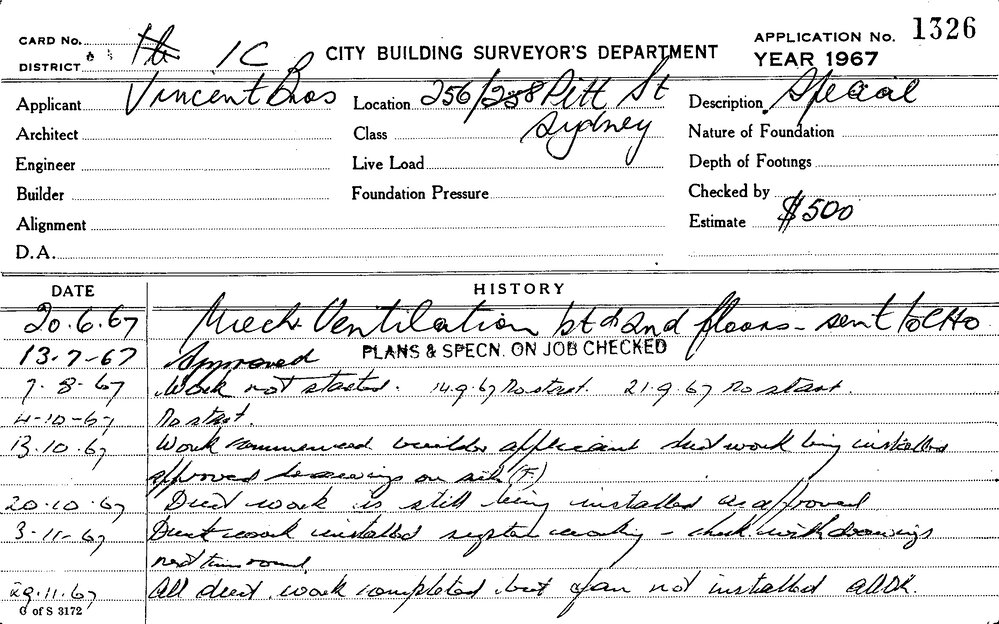 CARD No. 1326
DISTRICT 1C CITY BUILDING SURVEYOR'S DEPARTMENT APPLICATION No.
YEAR 1967
Applicant Vincent Bros Location 256/258 Pitt St Description Special
Architect Class Sydney Nature of Foundation
Engineer Live Load Depth of Footings
Builder Foundation Pressure Checked by
Alignment Estimate $500
D.A.
DATE HISTORY
20.6.67 Mech. Ventilation 1st & 2nd floors - sent to CHO
13-7-67 Approved PLANS & SPECN. ON JOB CHECKED
7-8-67 Work not started. 14.9.67 No start. 21.9.67 No start.
4-10-67 No start.
13.10.67 Work commenced builder applicant duct work being installed
approved drawings on site (F)
20.10.67 Duct work is still being installed as approved
3-11-67 Duct work installed system working - check with drawings
next time round
29.11.67 All duct work completed but fan not installed
G of S 3172